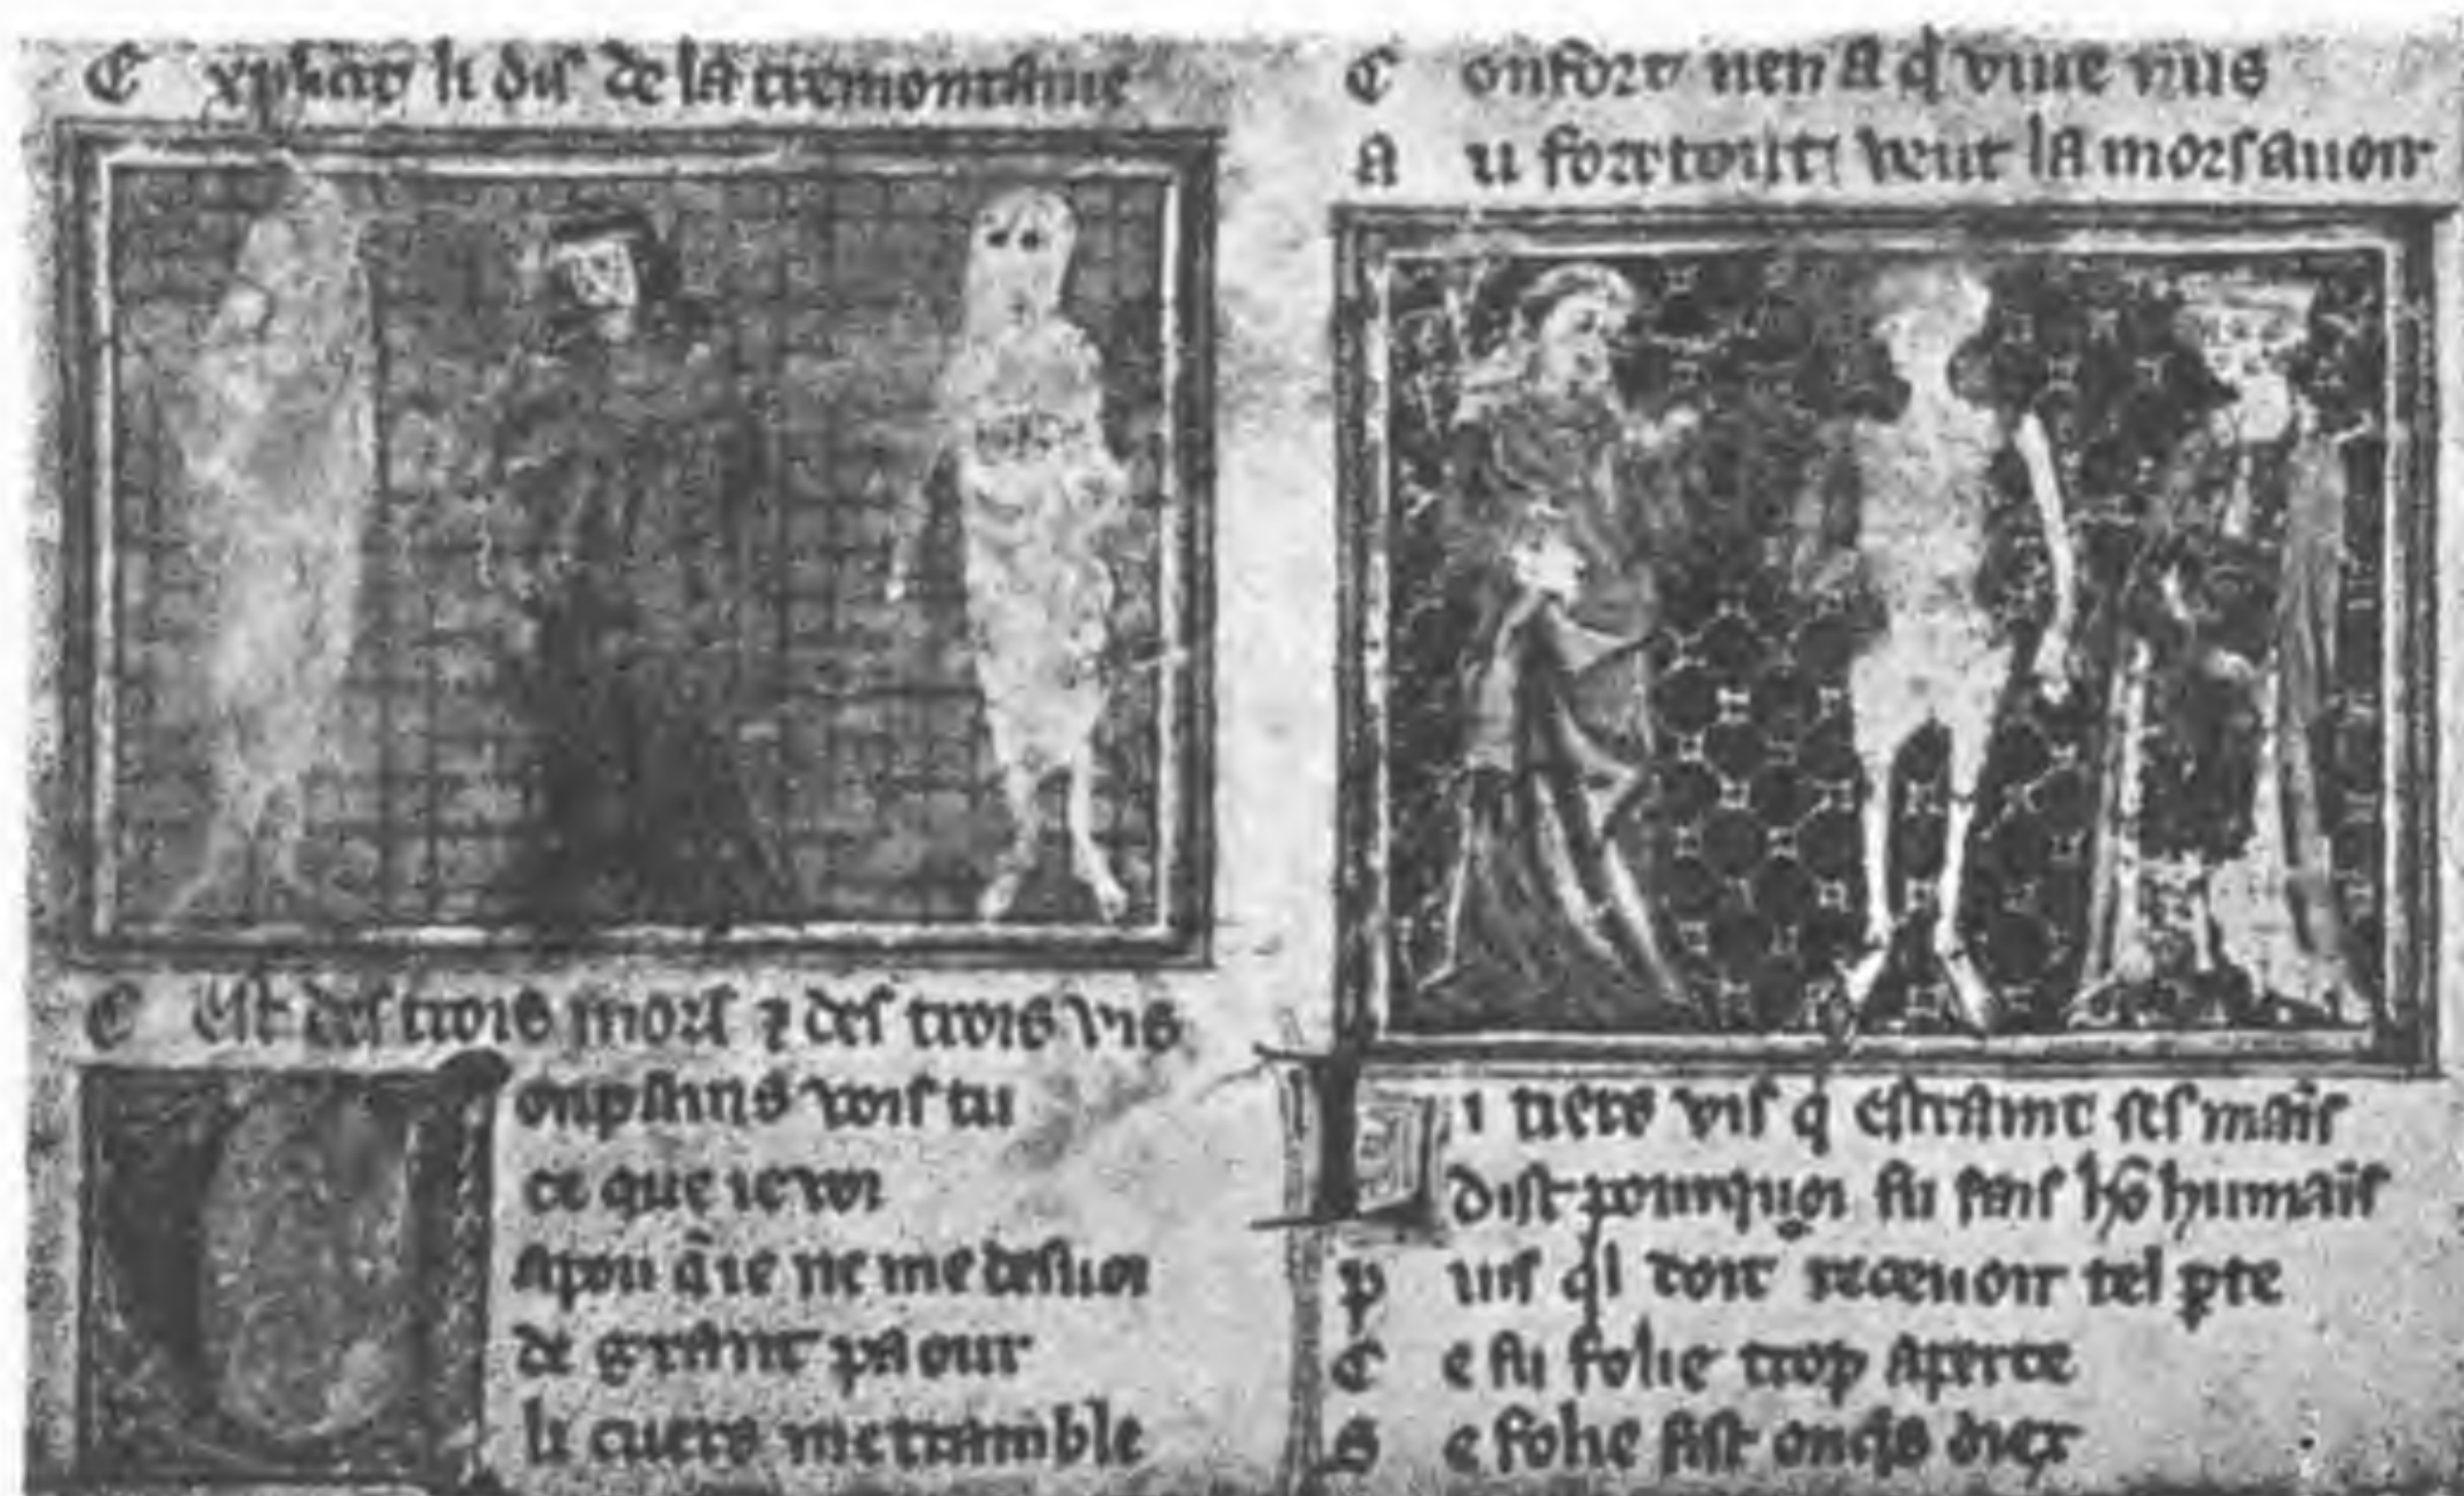 Explicit li dis de la tremontaine
C est des trois mors ⁊ des trois vis
Conpains vois tu
ce que ie voi
Apou q̄ ie ne me desuoi
de grant paour
li cuers me tramble
C onfort nen a q̓ viue nus
A u fort tout veut la mors auoir
Li tiers vis q̓ estraint ses mais̄
dist pourquoi fu fais hō humaīs
P uis q̓l doit receuoir tel ꝑte
C e fu folie trop aperte
S e folie fist onq̓s diex